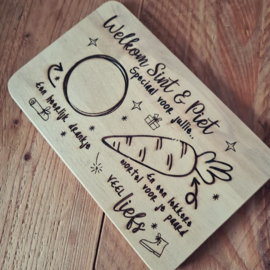 Welkom Sint & Piet
Speciaal voor jullie..
Een heerlijk drankje
En een lekkere
wortel voor je paard
VEEL
liefs